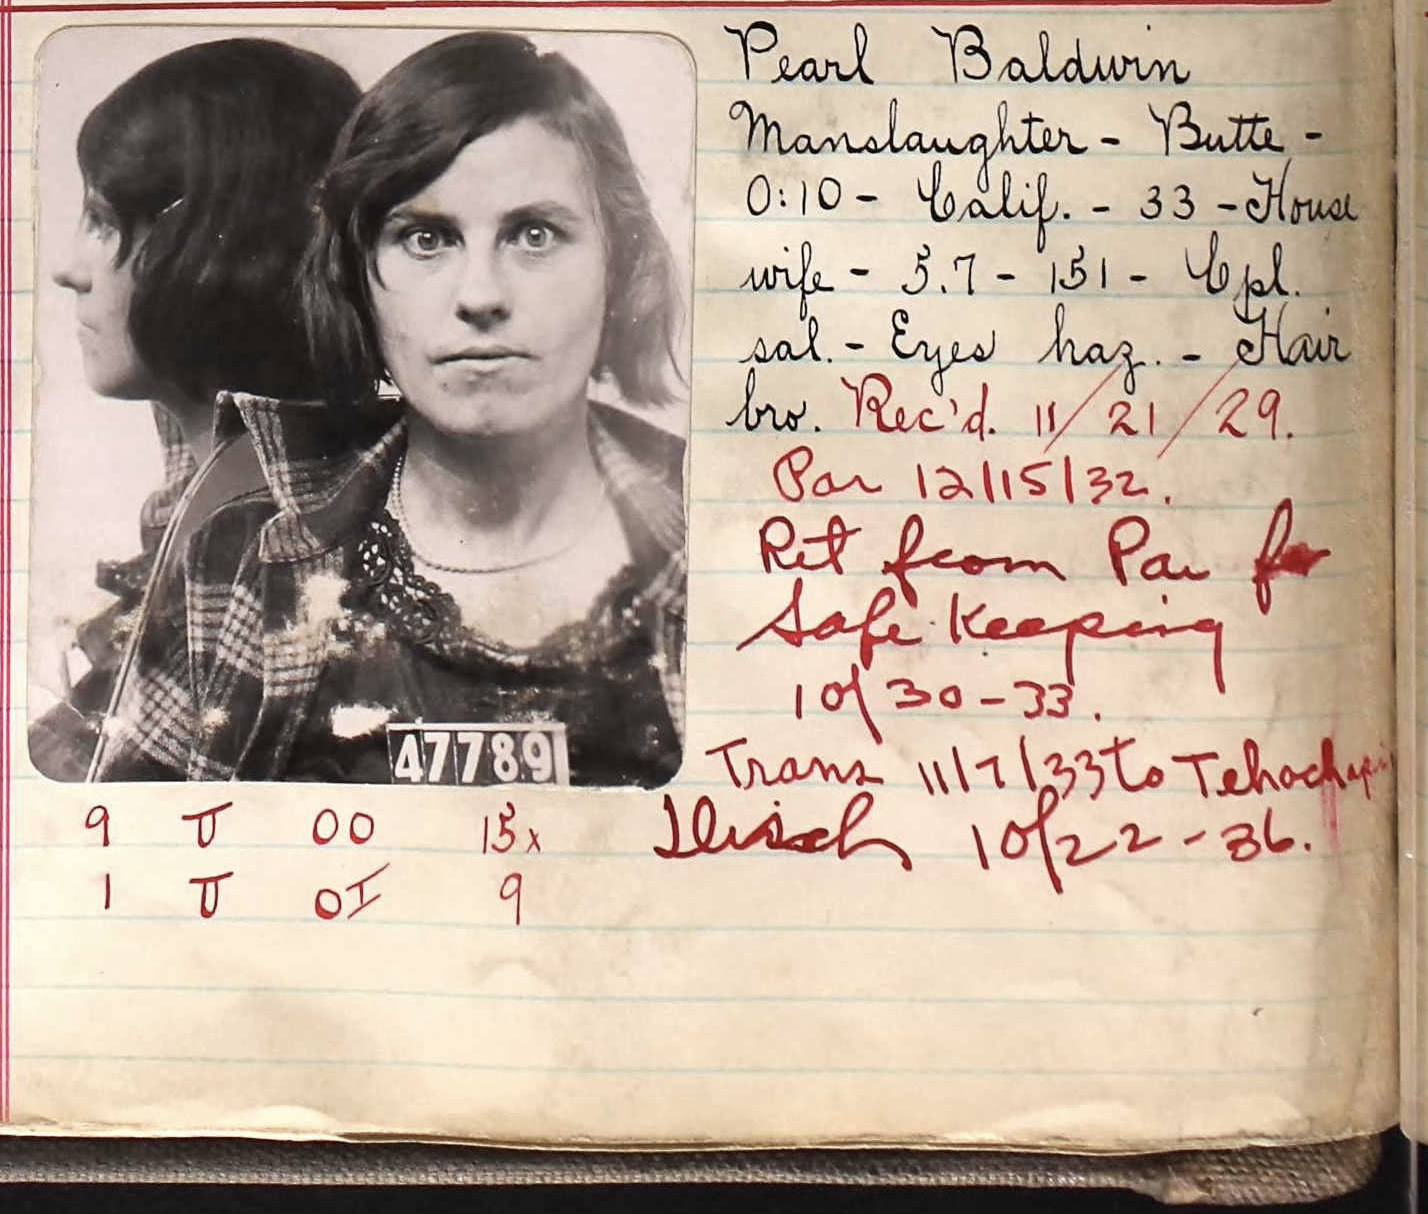 Pearl Baldwin
Manslaughter - Butte -
0:10 - Calif. - 33 - House
wife - 5.7 - 151 - Cpl.
sal. - Eyes haz. - Hair
bro. Rec'd. 11/21/29.
Par 12/15/32.
Ret from Par for
Safe Keeping
10/30-33.
Trans 11/7/33 to Tehachapi
Disch 10/22-36.
47789
9 U OO 15x
1 U OI 9